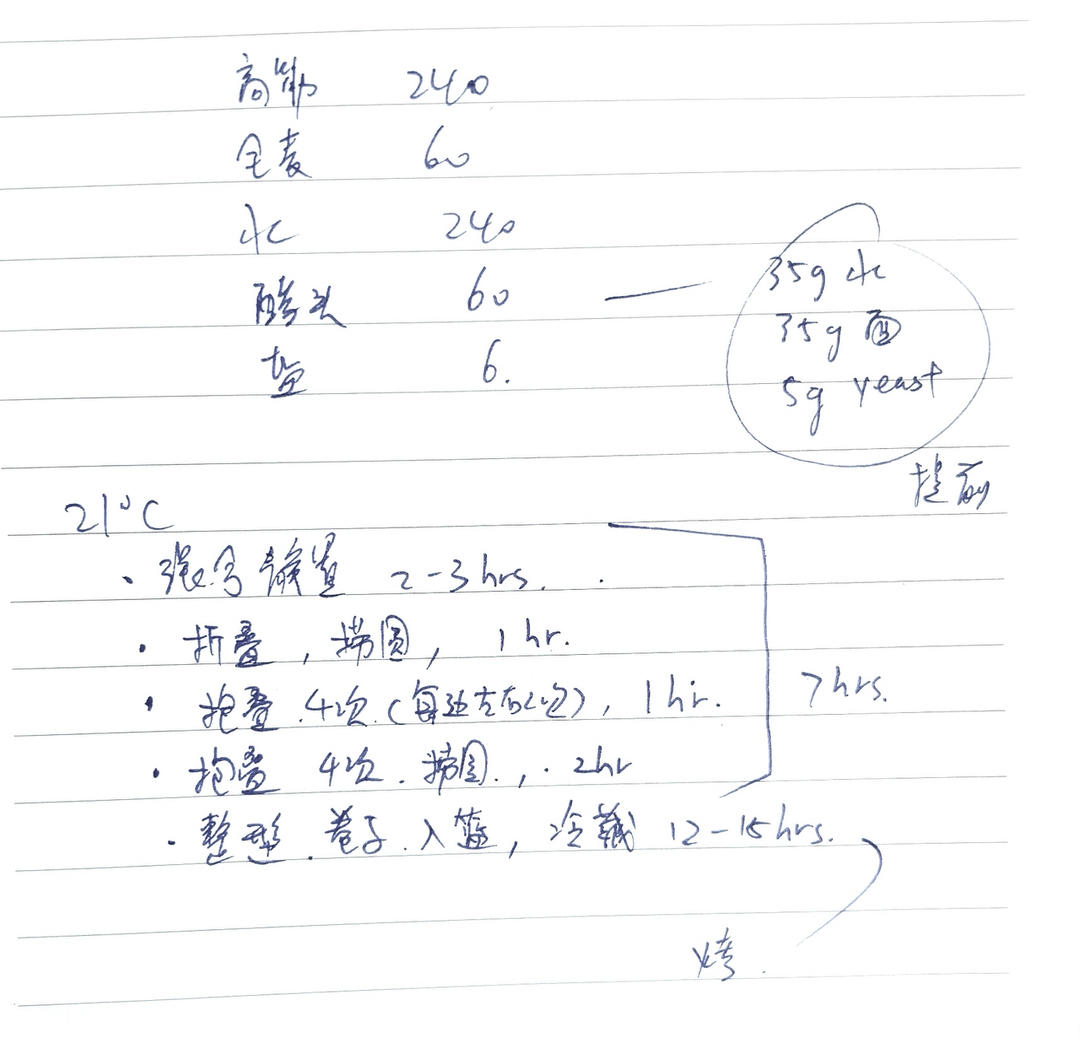 高筋 240
全麦 60
水 240
酵头 60
35g 水
35g 面
5g yeast
盐 6.
提前
21°C
· 混合静置 2-3 hrs.
· 折叠, 捞圆, 1 hr.
· 抱叠 4次 (每边左右2次), 1 hr.
· 抱叠 4次. 捞圆, 2hr
7 hrs.
· 整型. 卷子. 入篮, 冷藏 12-15 hrs.
烤.